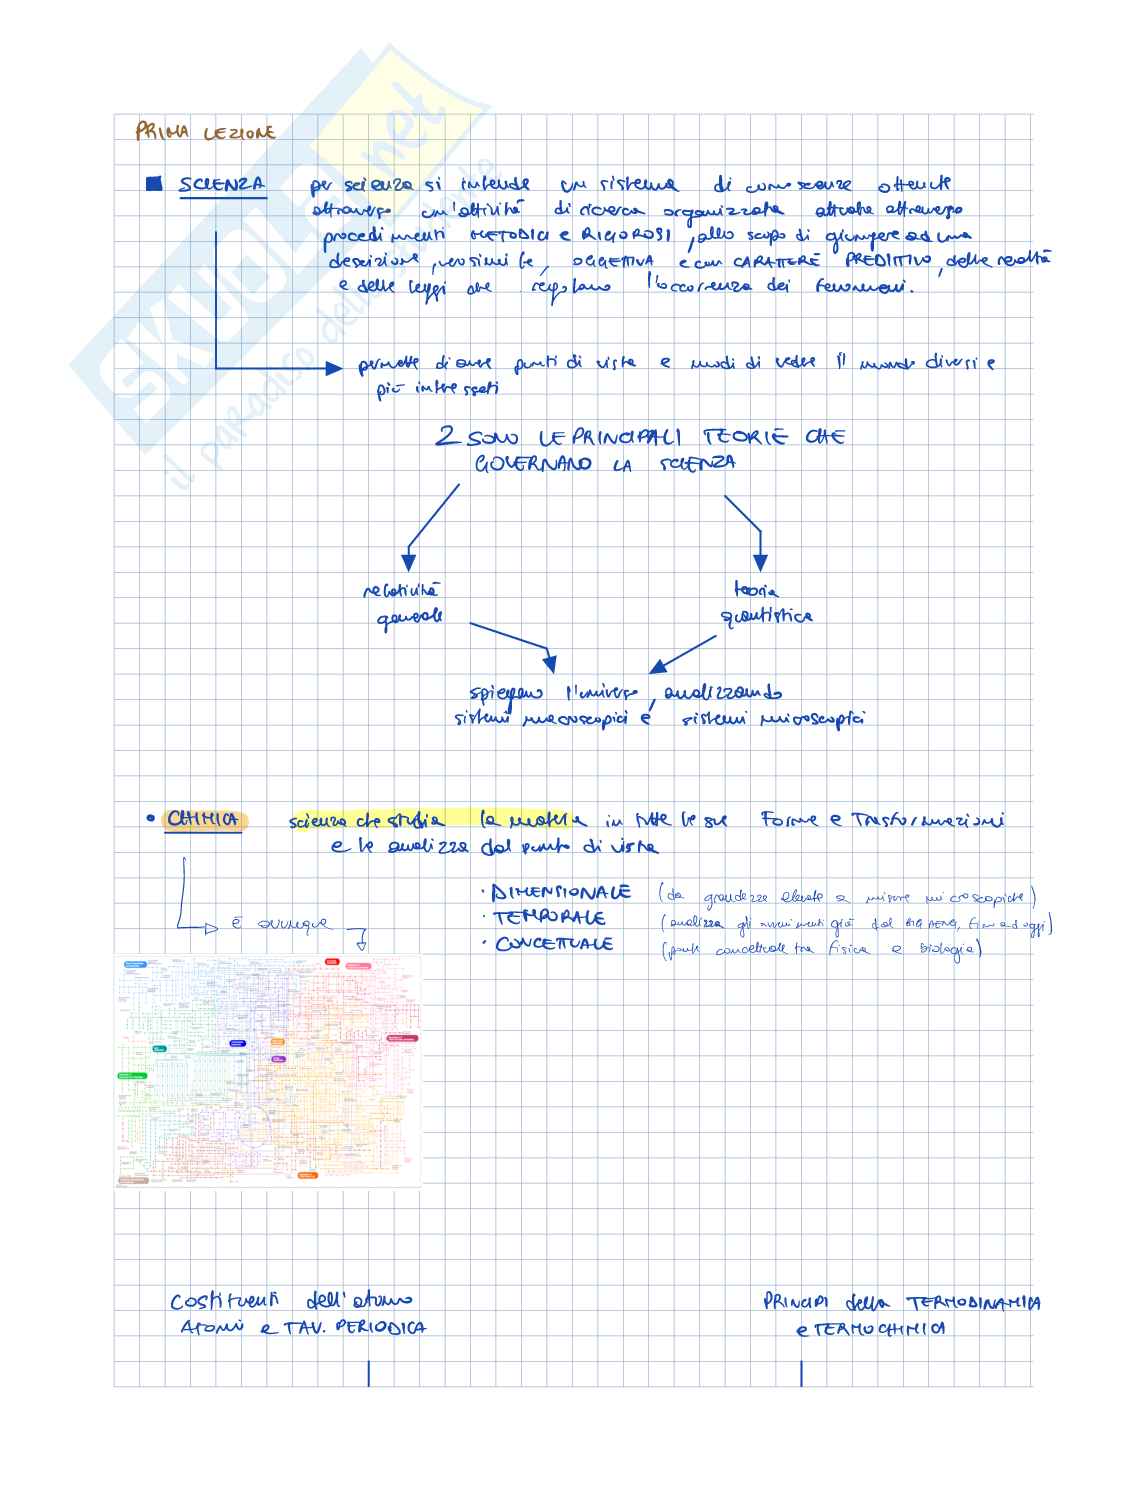 PRIMA LEZIONE
SCIENZA per scienza si intende un sistema di conoscenze ottenute
attraverso un'attività di ricerca organizzata attuata attraverso
procedimenti METODICI e RIGOROSI, allo scopo di giungere ad una
descrizione, verosimile, OGGETTIVA e con CARATTERE PREDITTIVO, della realtà
e delle leggi che regolano l'occorrenza dei fenomeni.
permette di avere punti di vista e modi di vedere il mondo diversi e
più interessati
2 SONO LE PRINCIPALI TEORIE CHE
GOVERNANO LA SCIENZA
relatività
generale
teoria
quantistica
spiegano l'universo, analizzando
sistemi macroscopici e sistemi microscopici
CHIMICA scienza che studia la materia in tutte le sue forme e trasformazioni
e le analizza dal punto di vista
· DIMENSIONALE (da grandezze elevate a misure microscopiche)
· TEMPORALE (analizza gli avvenimenti già dal BIG BENG, fino ad oggi)
· CONCETTUALE (ponte concettuale tra fisica e biologia)
è ovunque
Costituenti dell'atomo
Atomi e TAV. PERIODICA
PRINCIPI della TERMODINAMICA
e TERMOCHIMICA
SKUOLA.net
il paradiso dello studente